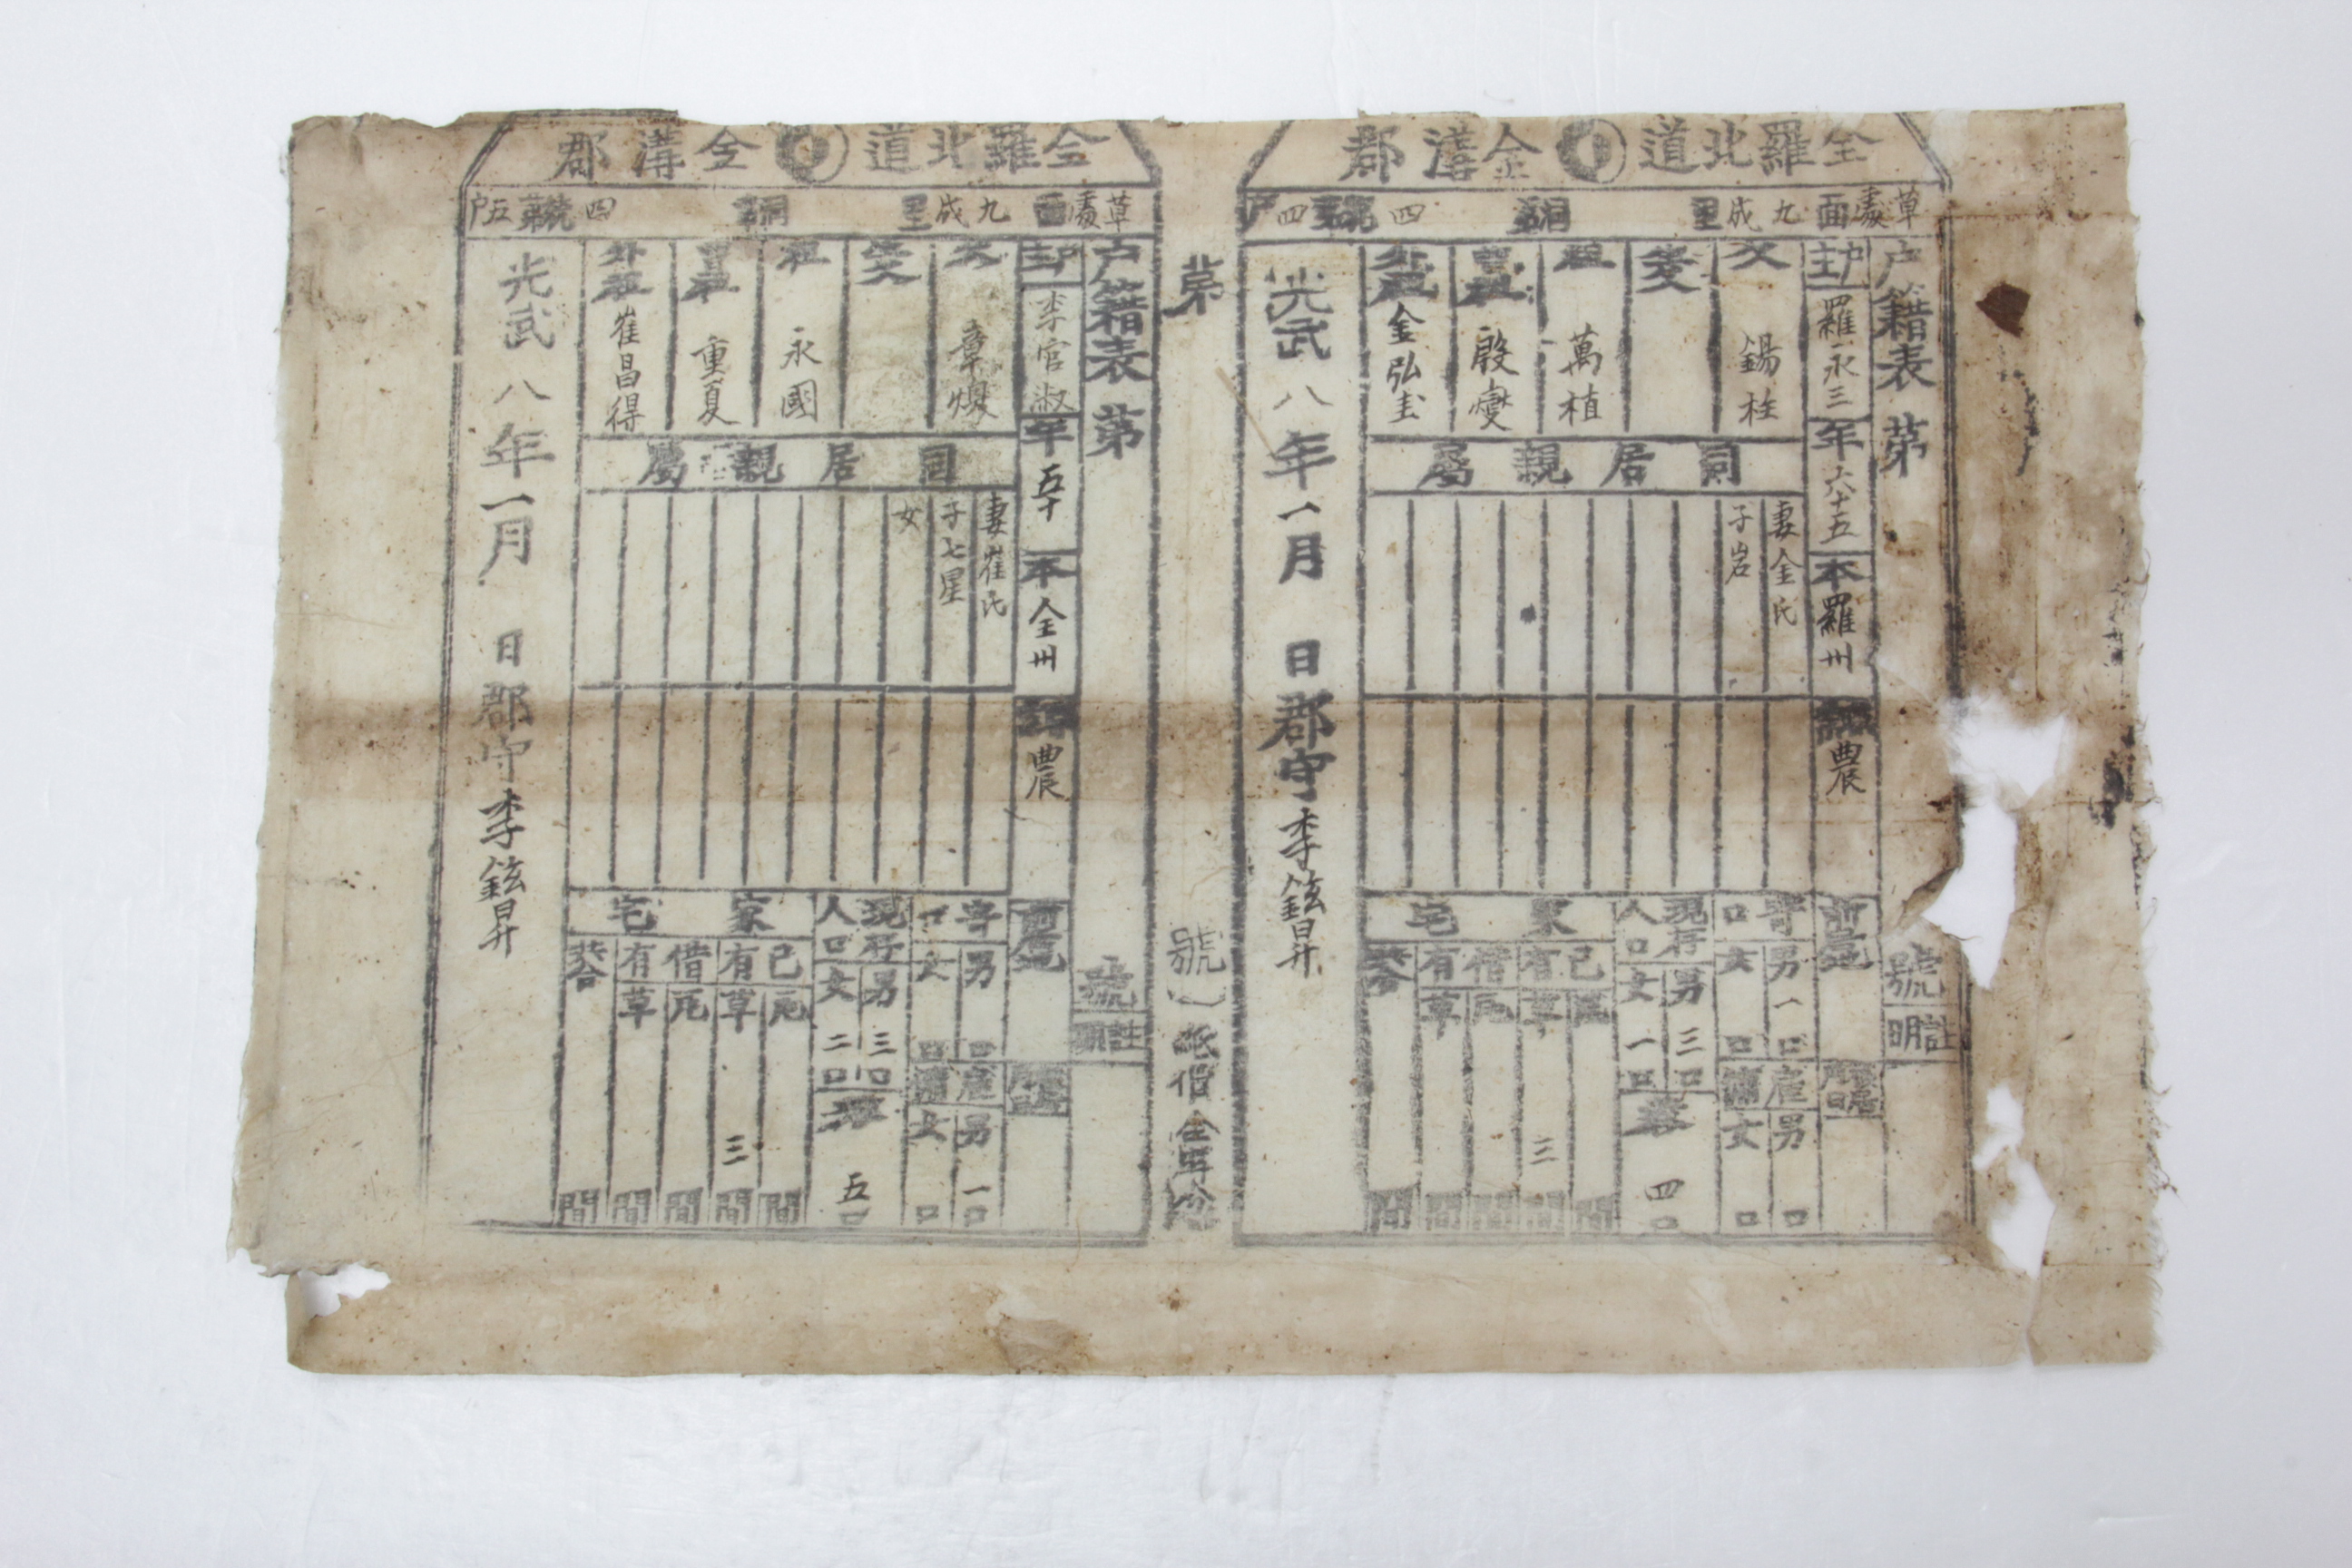 全羅北道 金溝郡
草處面 九成里 洞 四統 四戶
戶籍表 第 號
註明
戶主 羅永三
年 六十五
本 羅州
職業 農
前居地
移居
父 錫柱
生父
祖 萬植
曾祖 殷燮
外祖 金弘圭
同居親屬
妻金氏
子岩
寄口 男 一口 女 口
雇傭 男 口 女 口
現存人口 男 三口 女 一口
共合 四口
家宅
己有 瓦 間 草 三間
借有 瓦 間 草 間
共合 間
光武八年一月 日 郡守 李鉉昇
第 號 紙價
全羅北道 金溝郡
草處面 九成里 洞 四統 五戶
戶籍表 第 號
註明
戶主 李官淑
年 五十
本 全州
職業 農
前居地
移居
父 章煥
生父
祖 永國
曾祖 重夏
外祖 崔昌得
同居親屬
妻崔氏
子七星
女
寄口 男 口 女 口
雇傭 男 一口 女 口
現存人口 男 三口 女 二口
共合 五口
家宅
己有 瓦 間 草 三間
借有 瓦 間 草 間
共合 間
光武八年一月 日 郡守 李鉉昇